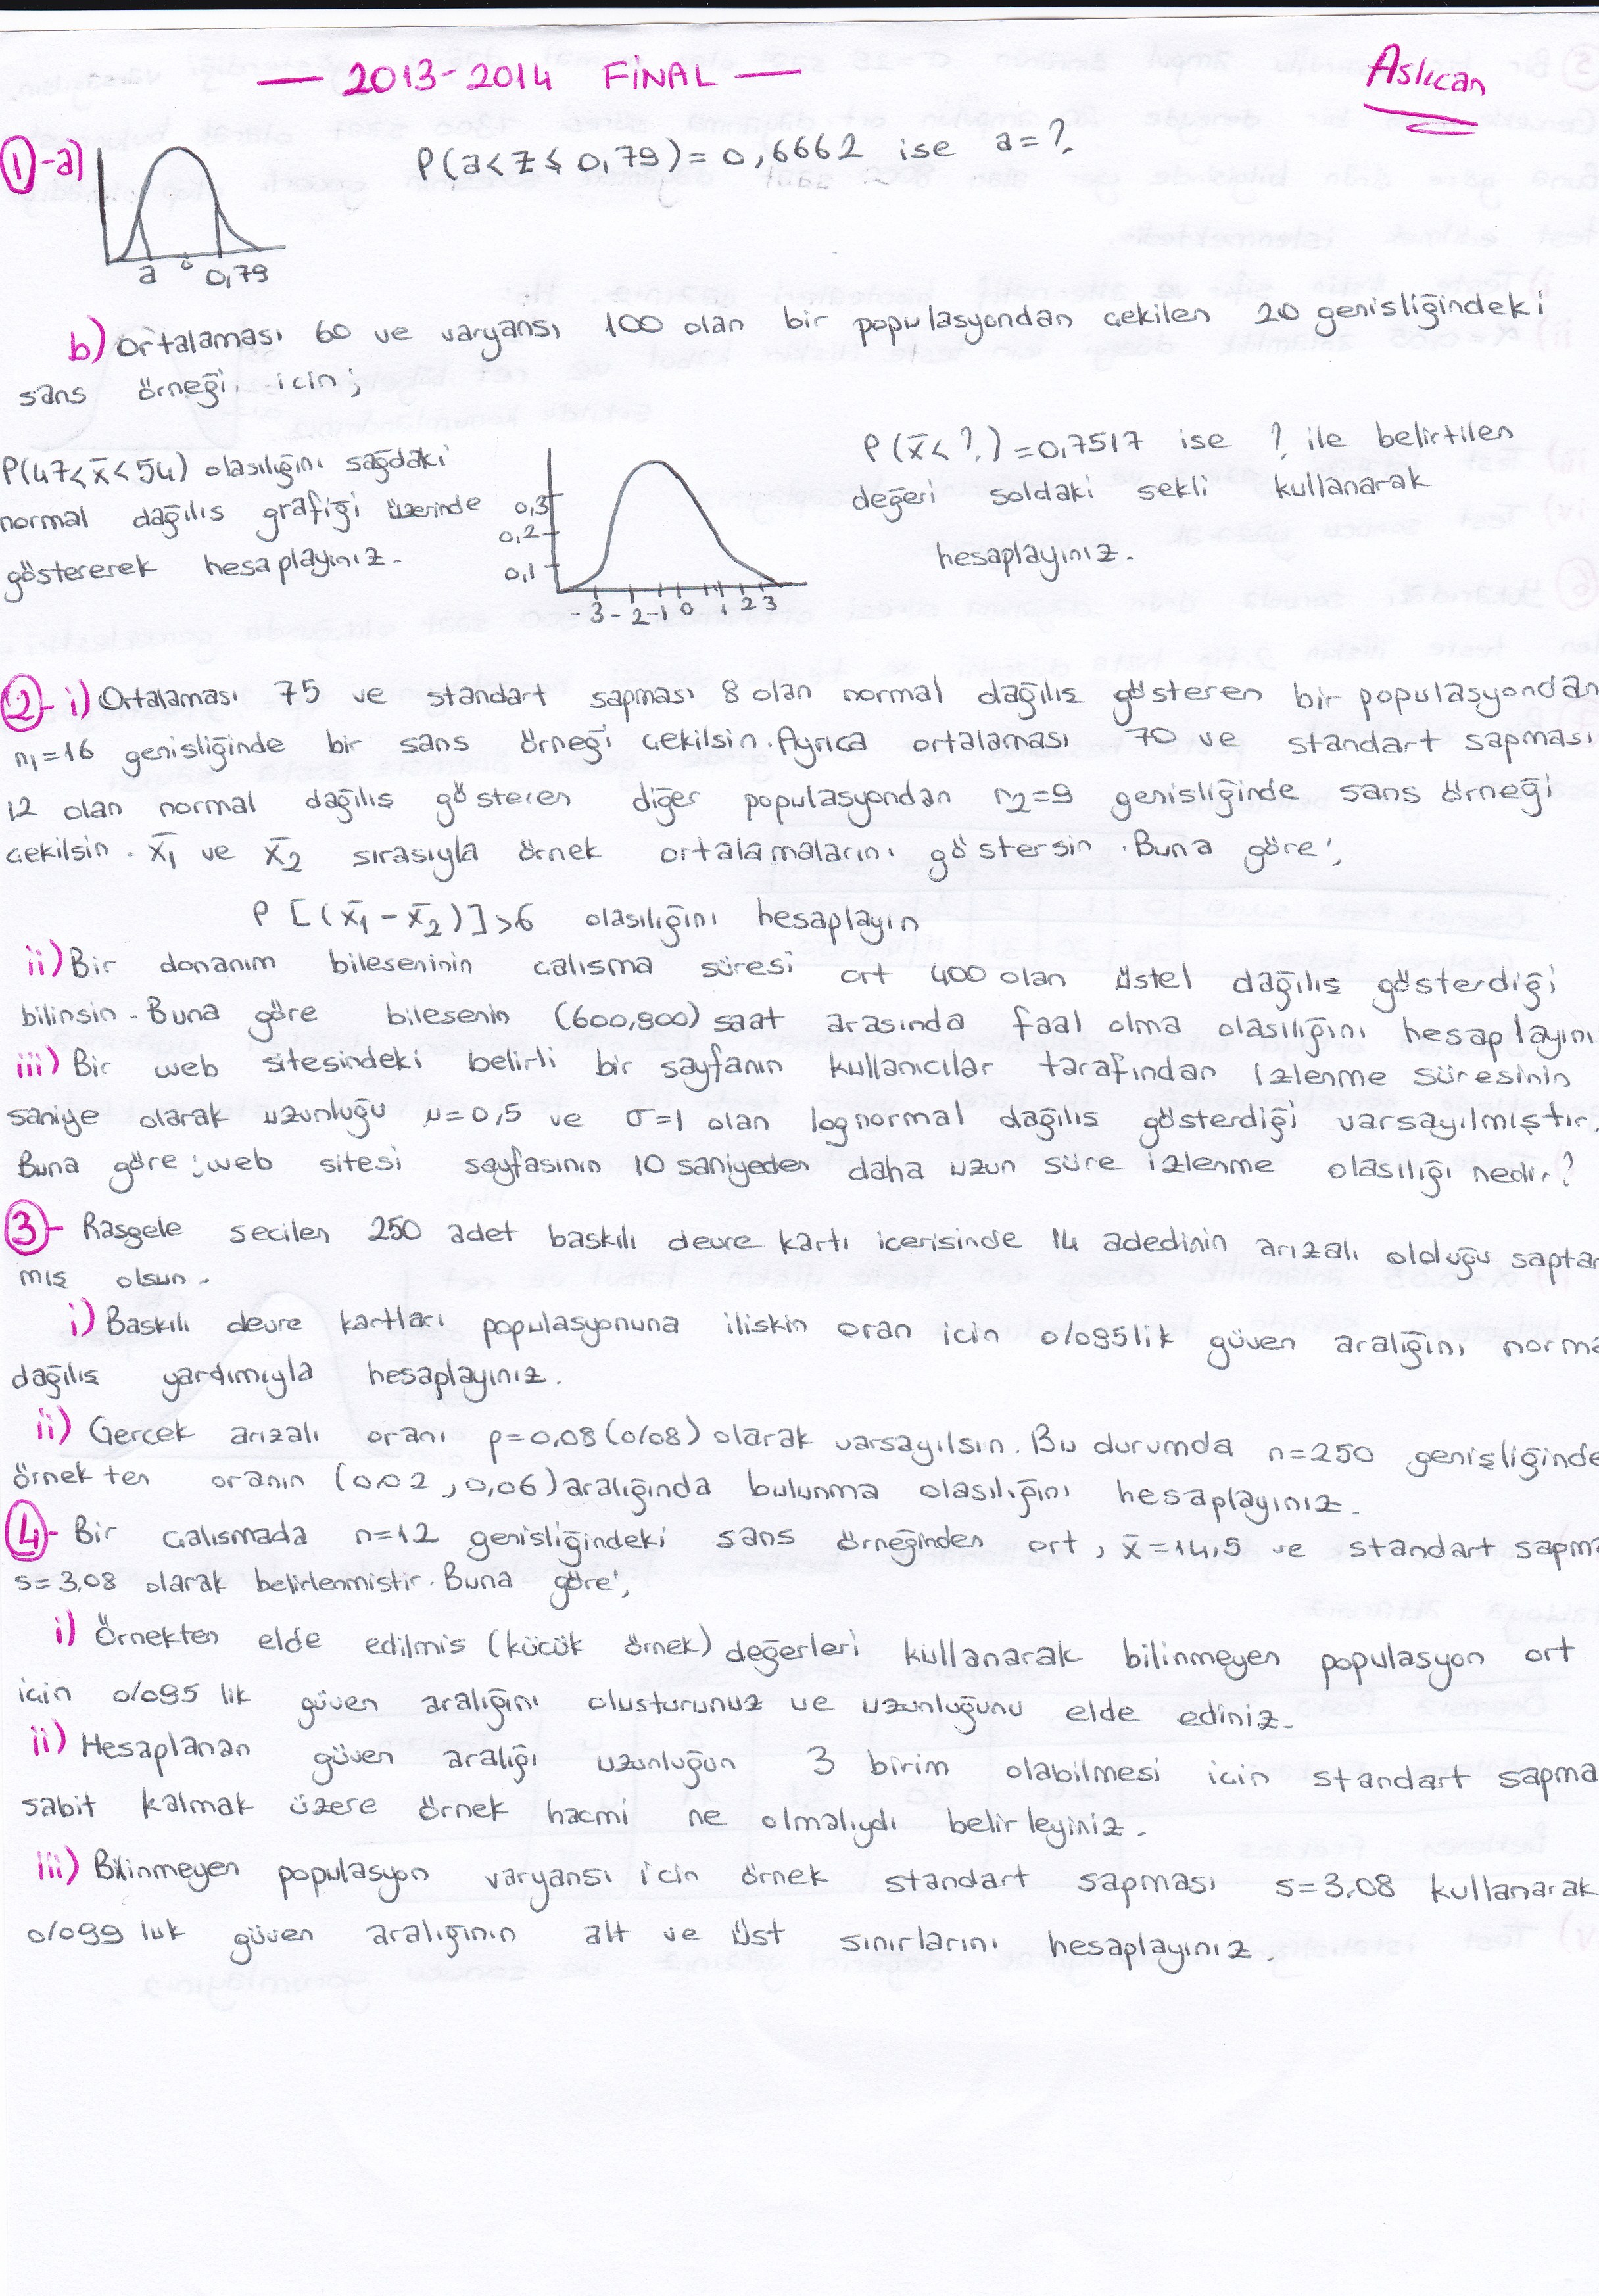 — 2013-2014 FİNAL —
Aslıcan
1-a) P(a<z≤0,79)=0,6662 ise a=?
a 0 0,79
b) Ortalaması 60 ve varyansı 100 olan bir populasyondan cekilen 20 genisliğindeki
sans örneği icin;
P(47<x̄<54) olasılığını sağdaki
normal dağılıs grafiği üzerinde
göstererek hesaplayınız.
0,3
0,2
0,1
-3 -2 -1 0 1 2 3
P(x̄<?)=0,7517 ise ? ile belirtilen
değeri soldaki sekli kullanarak
hesaplayınız.
2- i) Ortalaması 75 ve standart sapması 8 olan normal dağılıs gösteren bir populasyondan
n₁=16 genisliğinde bir sans örneği cekilsin. Ayrıca ortalaması 70 ve standart sapması
12 olan normal dağılıs gösteren diğer populasyondan n₂=9 genisliğinde sans örneği
cekilsin. x̄₁ ve x̄₂ sırasıyla örnek ortalamalarını göstersin. Buna göre;
P[(x̄₁-x̄₂)]>6 olasılığını hesaplayın
ii) Bir donanım bileseninin calısma süresi ort 400 olan üstel dağılıs gösterdiği
bilinsin. Buna göre bilesenin (600,800) saat arasında faal olma olasılığını hesaplayın
iii) Bir web sitesindeki belirli bir sayfanın kullanıcılar tarafından izlenme süresinin
saniye olarak uzunluğu μ=0,5 ve σ=1 olan lognormal dağılıs gösterdiği varsayılmıştır.
Buna göre; web sitesi sayfasının 10 saniyeden daha uzun süre izlenme olasılığı nedir?
3- Rasgele secilen 250 adet baskılı devre kartı icerisinde 14 adedinin arızalı olduğu saptan
mıs olsun.
i) Baskılı devre kartları populasyonuna iliskin oran icin 0/095lik güven aralığını norma
dağılıs yardımıyla hesaplayınız.
ii) Gercek arızalı oranı p=0,08 (0/08) olarak varsayılsın. Bu durumda n=250 genişliğinde
örnekten oranın (0.02, 0,06) aralığında bulunma olasılığını hesaplayınız.
4- Bir calısmada n=12 genisliğindeki sans örneğinden ort, x̄=14,5 ve standart sapma
s=3.08 olarak belirlenmistir. Buna göre;
i) Örnekten elde edilmis (kücük örnek) değerleri kullanarak bilinmeyen populasyon ort
icin 0/095 lik güven aralığını olusturunuz ve uzunluğunu elde ediniz.
ii) Hesaplanan güven aralığı uzunluğun 3 birim olabilmesi icin standart sapma
sabit kalmak üzere örnek hacmi ne olmalıydı belirleyiniz.
iii) Bilinmeyen populasyon varyansı icin örnek standart sapması s=3.08 kullanarak
0/099 luk güven aralığının alt ve üst sınırlarını hesaplayınız.